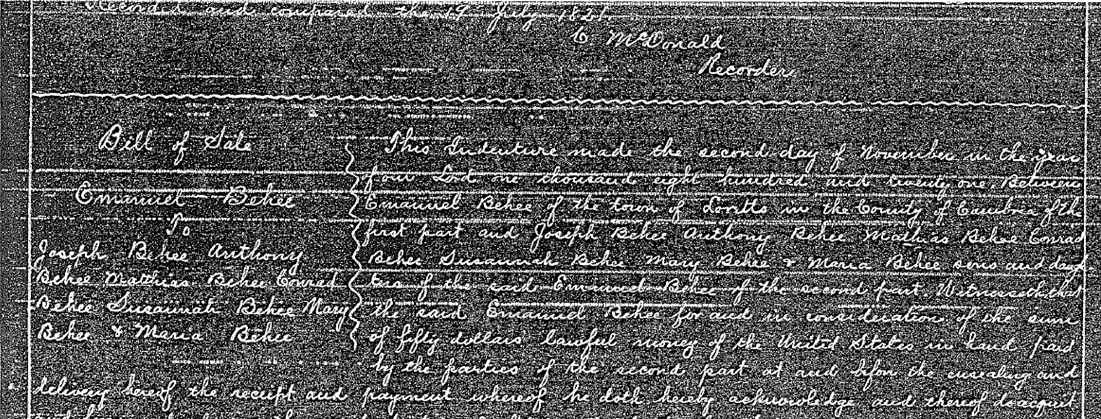 Recorded and compared the 19 July 1821.
C McDonald
Recorder
Bill of Sale
Emanuel Behee
To
Joseph Behee Anthony
Behee Matthias Behee Conrad
Behee Susannah Behee Mary
Behee & Maria Behee
This Indenture made the second day of November in the year
of our Lord one thousand eight hundred and twenty one. Between
Emanuel Behee of the town of Loretto in the County of Cambria of the
first part and Joseph Behee Anthony Behee Mathias Behee Conrad
Behee Susannah Behee Mary Behee & Maria Behee sons and daugh
ters of the said Emanuel Behee of the second part. Witnesseth, that
the said Emanuel Behee for and in consideration of the sum
of fifty dollars lawful money of the United States in hand paid
by the parties of the second part at and before the ensealing and
delivery hereof the receipt and payment whereof he doth hereby acknowledge and thereof doacquit